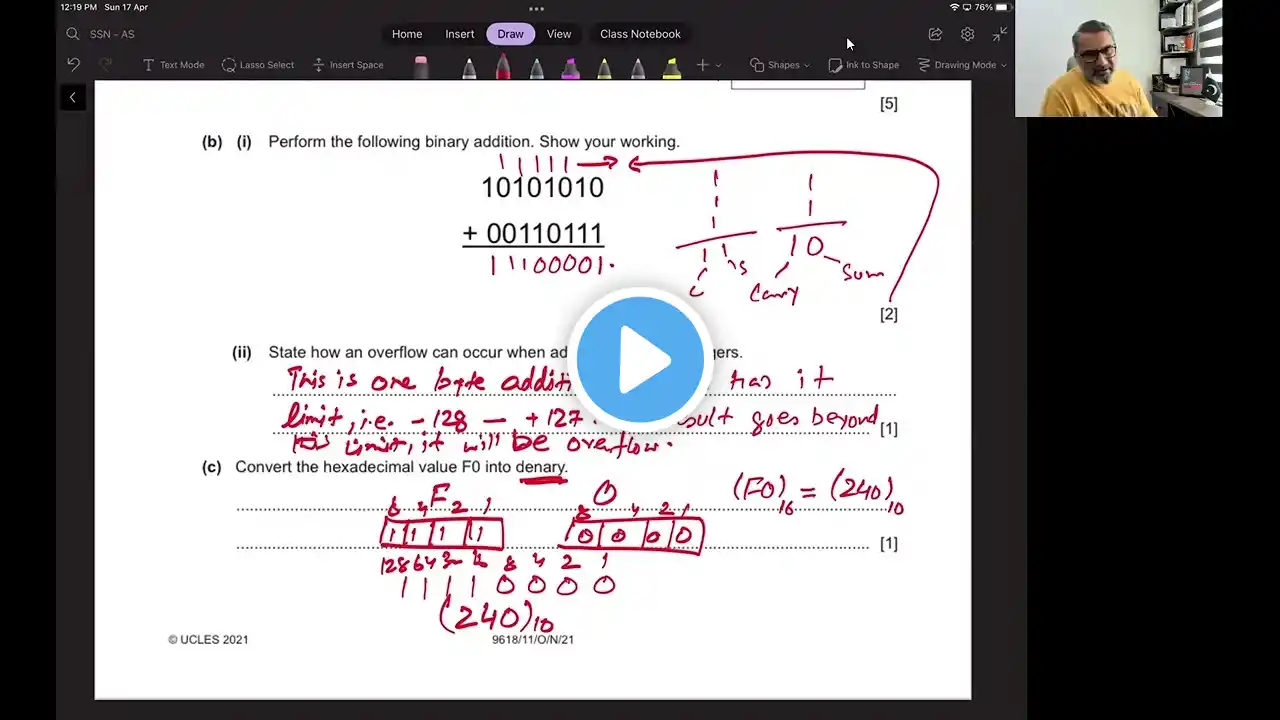 12:19 PM Sun 17 Apr
76%
SSN - AS
Home Insert Draw View Class Notebook
Text Mode Lasso Select Insert Space Shapes Ink to Shape Drawing Mode
[5]
(b) (i) Perform the following binary addition. Show your working.
1 1 1 1 1
10101010
+ 00110111
11100001.
1
1
1
1 1s
c
1
1
10
Carry Sum
[2]
(ii) State how an overflow can occur when ad gers.
This is one byte additi has it
limit, i.e. -128 — +127. sult goes beyond
limit, it will be overflow.
[1]
(c) Convert the hexadecimal value F0 into denary.
F 0
(F0)16 = (240)10
8 4 2 1 8 4 2 1
1 1 1 1 0 0 0 0
[1]
128 64 32 16 8 4 2 1
1 1 1 1 0 0 0 0
(240)10
© UCLES 2021 9618/11/O/N/21